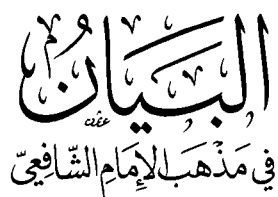 البَيَانُ
في مَذْهَبِ الإِمَامِ الشَّافِعِيّ